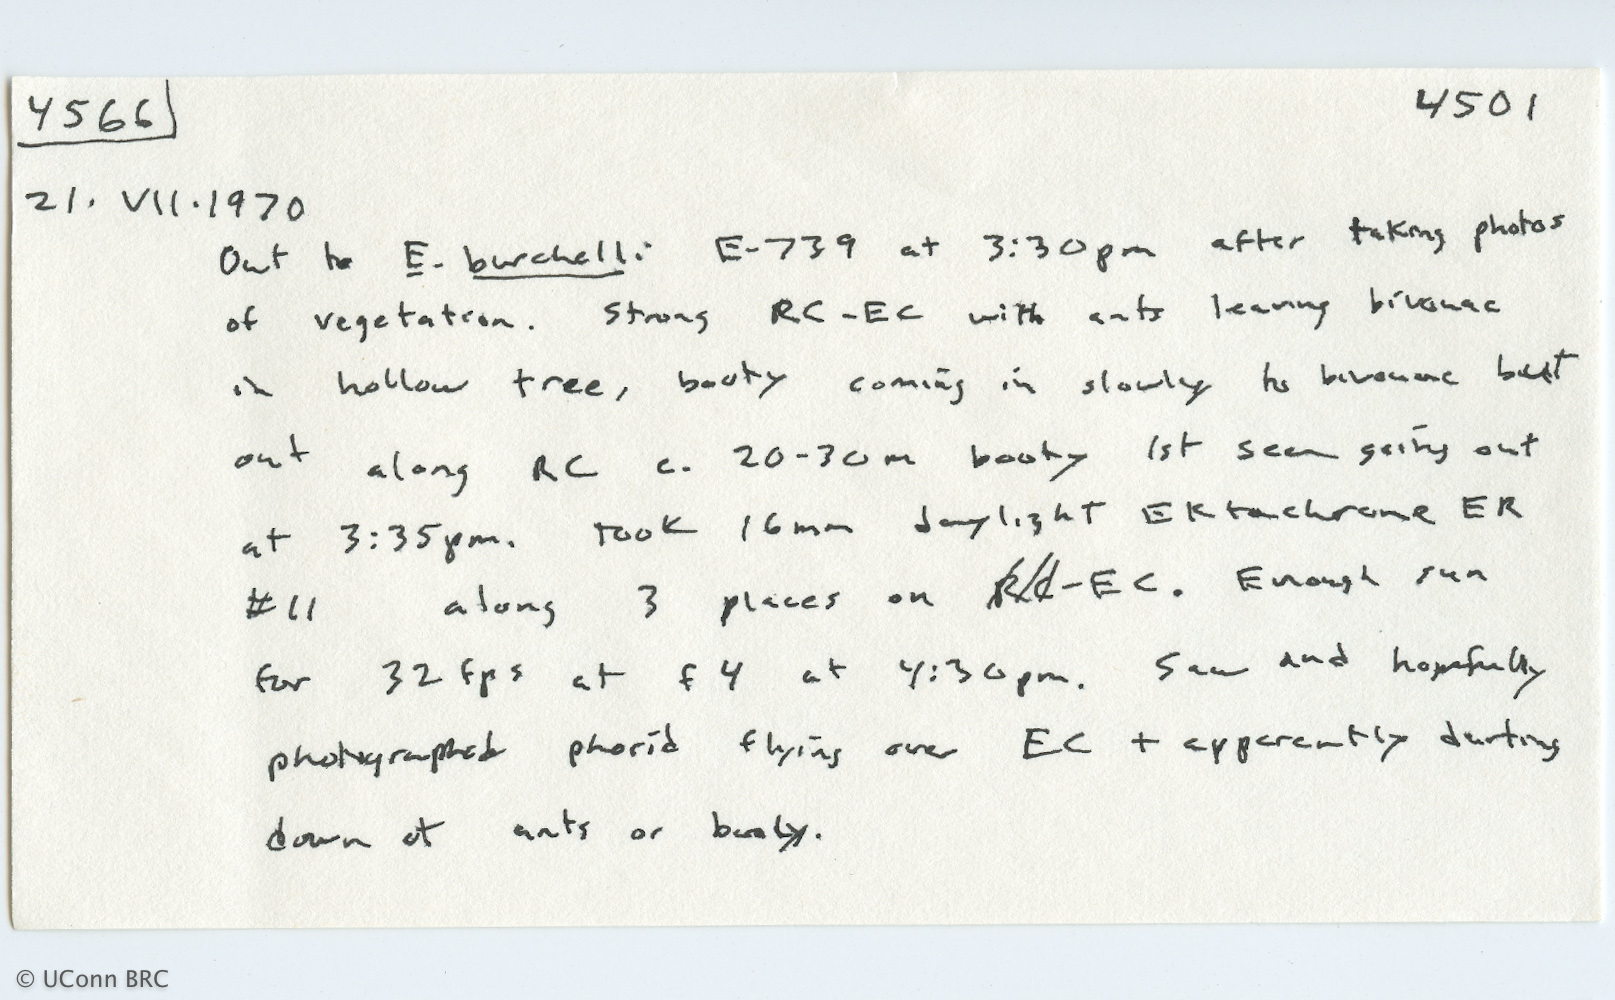 4566 4501
21. VII.1970
Out to E. burchelli E-739 at 3:30pm after taking photos
of vegetation. Strong RC-EC with ants leaving bivouac
in hollow tree, booty coming in slowly to bivouac but
out along RC c. 20-30m booty 1st seen going out
at 3:35pm. Took 16mm daylight Ektachrome ER
#11 along 3 places on RC-EC. Enough sun
for 32 fps at f4 at 4:30pm. Saw and hopefully
photographed phorid flying over EC + apparently darting
down at ants or booty.
© UConn BRC